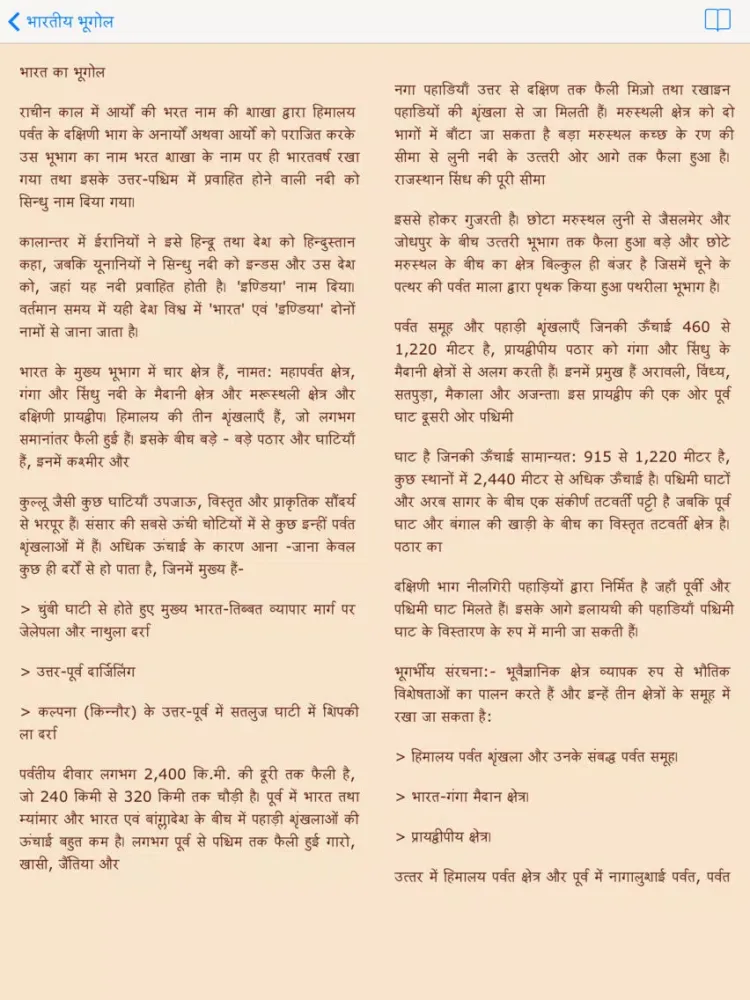 भारतीय भूगोल
भारत का भूगोल
राचीन काल में आर्यों की भरत नाम की शाखा द्वारा हिमालय
पर्वत के दक्षिणी भाग के अनार्यों अथवा आर्यों को पराजित करके
उस भूभाग का नाम भरत शाखा के नाम पर ही भारतवर्ष रखा
गया तथा इसके उत्तर-पश्चिम में प्रवाहित होने वाली नदी को
सिन्धु नाम दिया गया।
कालान्तर में ईरानियों ने इसे हिन्दू तथा देश को हिन्दुस्तान
कहा, जबकि यूनानियों ने सिन्धु नदी को इन्डस और उस देश
को, जहां यह नदी प्रवाहित होती है। 'इण्डिया' नाम दिया।
वर्तमान समय में यही देश विश्व में 'भारत' एवं 'इण्डिया' दोनों
नामों से जाना जाता है।
भारत के मुख्य भूभाग में चार क्षेत्र हैं, नामत: महापर्वत क्षेत्र,
गंगा और सिंधु नदी के मैदानी क्षेत्र और मरूस्थली क्षेत्र और
दक्षिणी प्रायद्वीप। हिमालय की तीन शृंखलाएँ हैं, जो लगभग
समानांतर फैली हुई हैं। इसके बीच बड़े - बड़े पठार और घाटियाँ
हैं, इनमें कश्मीर और
कुल्लू जैसी कुछ घाटियाँ उपजाऊ, विस्तृत और प्राकृतिक सौंदर्य
से भरपूर हैं। संसार की सबसे ऊंची चोटियों में से कुछ इन्हीं पर्वत
शृंखलाओं में हैं। अधिक ऊंचाई के कारण आना -जाना केवल
कुछ ही दर्रों से हो पाता है, जिनमें मुख्य हैं-
> चुंबी घाटी से होते हुए मुख्य भारत-तिब्बत व्यापार मार्ग पर
जेलेपला और नाथुला दर्रा
> उत्तर-पूर्व दार्जिलिंग
> कल्पना (किन्नौर) के उत्तर-पूर्व में सतलुज घाटी में शिपकी
ला दर्रा
पर्वतीय दीवार लगभग 2,400 कि.मी. की दूरी तक फैली है,
जो 240 किमी से 320 किमी तक चौड़ी है। पूर्व में भारत तथा
म्यांमार और भारत एवं बांग्लादेश के बीच में पहाड़ी शृंखलाओं की
ऊंचाई बहुत कम है। लगभग पूर्व से पश्चिम तक फैली हुई गारो,
खासी, जैंतिया और
नगा पहाडियाँ उत्तर से दक्षिण तक फैली मिज़ो तथा रखाइन
पहाडियों की शृंखला से जा मिलती हैं। मरुस्थली क्षेत्र को दो
भागों में बाँटा जा सकता है बड़ा मरुस्थल कच्छ के रण की
सीमा से लुनी नदी के उत्तरी ओर आगे तक फैला हुआ है।
राजस्थान सिंध की पूरी सीमा
इससे होकर गुजरती है। छोटा मरुस्थल लुनी से जैसलमेर और
जोधपुर के बीच उत्तरी भूभाग तक फैला हुआ बड़े और छोटे
मरुस्थल के बीच का क्षेत्र बिल्कुल ही बंजर है जिसमें चूने के
पत्थर की पर्वत माला द्वारा पृथक किया हुआ पथरीला भूभाग है।
पर्वत समूह और पहाड़ी शृंखलाएँ जिनकी ऊँचाई 460 से
1,220 मीटर है, प्रायद्वीपीय पठार को गंगा और सिंधु के
मैदानी क्षेत्रों से अलग करती हैं। इनमें प्रमुख हैं अरावली, विंध्य,
सतपुड़ा, मैकाला और अजन्ता। इस प्रायद्वीप की एक ओर पूर्व
घाट दूसरी ओर पश्चिमी
घाट है जिनकी ऊँचाई सामान्यत: 915 से 1,220 मीटर है,
कुछ स्थानों में 2,440 मीटर से अधिक ऊँचाई है। पश्चिमी घाटों
और अरब सागर के बीच एक संकीर्ण तटवर्ती पट्टी है जबकि पूर्व
घाट और बंगाल की खाड़ी के बीच का विस्तृत तटवर्ती क्षेत्र है।
पठार का
दक्षिणी भाग नीलगिरी पहाड़ियों द्वारा निर्मित है जहाँ पूर्वी और
पश्चिमी घाट मिलते हैं। इसके आगे इलायची की पहाडियाँ पश्चिमी
घाट के विस्तारण के रुप में मानी जा सकती हैं।
भूगर्भीय संरचना:- भूवैज्ञानिक क्षेत्र व्यापक रुप से भौतिक
विशेषताओं का पालन करते हैं और इन्हें तीन क्षेत्रों के समूह में
रखा जा सकता है:
> हिमालय पर्वत शृंखला और उनके संबद्ध पर्वत समूह।
> भारत-गंगा मैदान क्षेत्र।
> प्रायद्वीपीय क्षेत्र।
उत्तर में हिमालय पर्वत क्षेत्र और पूर्व में नागालुशाई पर्वत, पर्वत